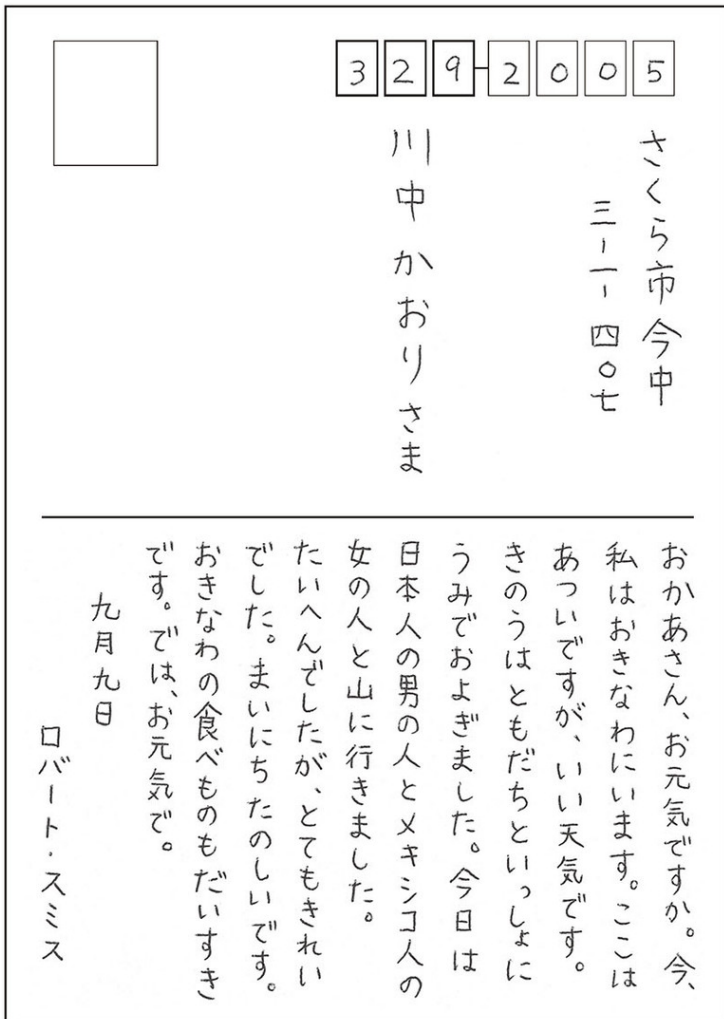 329-2005
さくら市今中
三-一-四〇七
川中かおりさま
おかあさん、お元気ですか。今、
私はおきなわにいます。ここは
あついですが、いい天気です。
きのうはともだちといっしょに
うみでおよぎました。今日は
日本人の男の人とメキシコ人の
女の人と山に行きました。
たいへんでしたが、とてもきれい
でした。まいにちたのしいです。
おきなわの食べものもだいすき
です。では、お元気で。
九月九日
ロバート・スミス